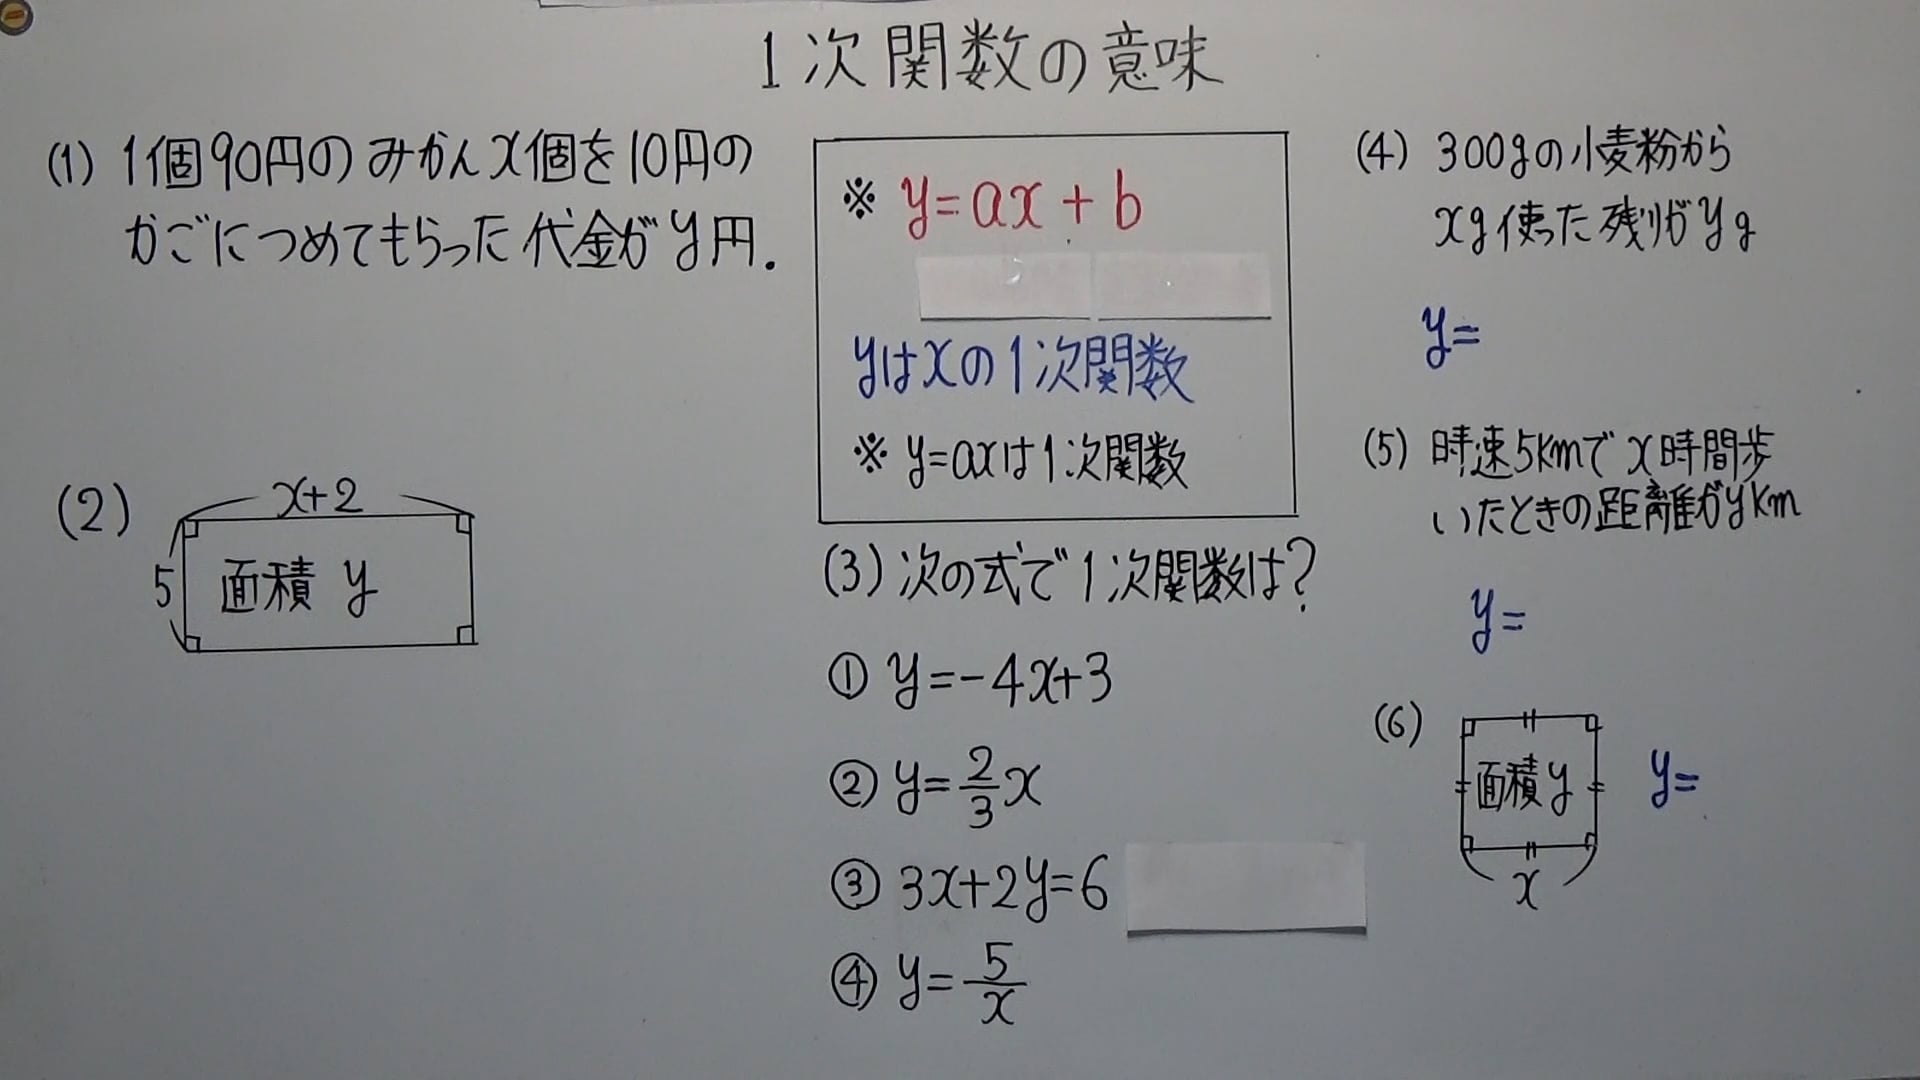 1次関数の意味
(1) 1個90円のみかんx個を10円の
かごにつめてもらった代金がy円.
(2)
x+2
5
面積 y
※ y=ax+b
yはxの1次関数
※ y=axは1次関数
(3) 次の式で1次関数は?
① y=-4x+3
② y=2/3x
③ 3x+2y=6
④ y=5/x
(4) 300gの小麦粉から
xg使った残りがyg
y=
(5) 時速5kmでx時間歩
いたときの距離がykm
y=
(6)
面積y
x
y=